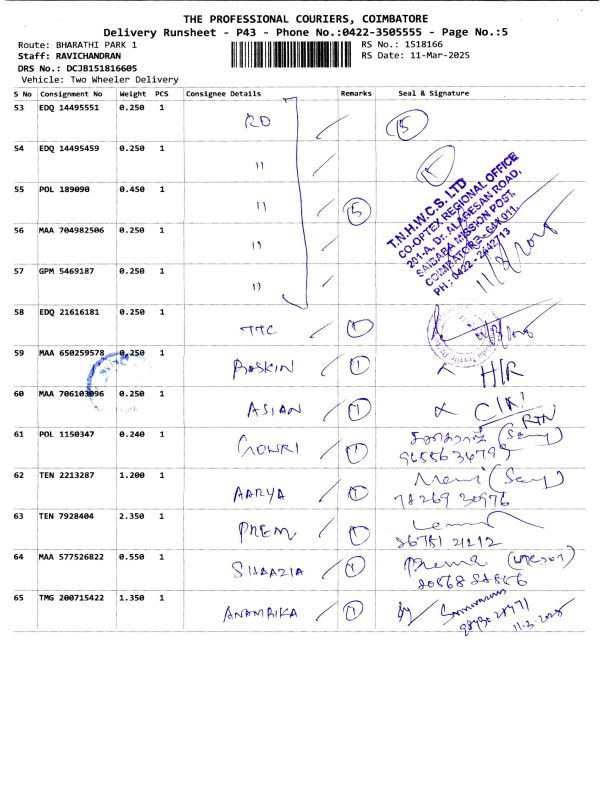 THE PROFESSIONAL COURIERS, COIMBATORE
Delivery Runsheet - P43 - Phone No.:0422-3505555 - Page No.:5
Route: BHARATHI PARK 1
RS No.: 1518166
Staff: RAVICHANDRAN
RS Date: 11-Mar-2025
DRS No.: DCJB151816605
Vehicle: Two Wheeler Delivery
S No Consignment No Weight PCS Consignee Details Remarks Seal & Signature
53 EDQ 14495551 0.250 1 RO 5
54 EDQ 14495459 0.250 1 "
55 POL 189090 0.450 1 " 5
56 MAA 704982506 0.250 1 "
57 GPM 5469187 0.250 1 "
T.N.H.W.C.S. LTD
CO-OPTEX REGIONAL OFFICE
201-A, Dr. ALAGESAN ROAD,
SAIBABA MISSION POST,
COIMBATORE - 641 011.
PH : 0422 - 2442713
11/3/2025
58 EDQ 21616181 0.250 1 TTC 1
59 MAA 650259578 0.250 1 BASKIN 1 H/R
60 MAA 706103096 0.250 1 ASIAN 1
RTN
61 POL 1150347 0.240 1 GOWRI 1
62 TEN 2213287 1.200 1 AARYA 1
78269 30976
63 TEN 7928404 2.350 1 PREM 1
86781 21212
64 MAA 577526822 0.550 1 SHAAZIA 1 Prema
65 TMG 200715422 1.350 1 ANAMRIKA 1
11.3.2025